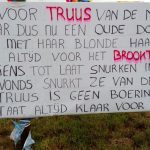 VOOR TRUUS VAN DE
AR DUS NU EEN OUDE DO
MET HAAR BLONDE HAA
ALTYD VOOR HET BROOKT
ENS TOT LAAT SNURKEN IN
VONDS SNURKT ZE VAN DE
TRUUS IS GEEN BOERIN
TAAT ALTYD KLAAR VOOR